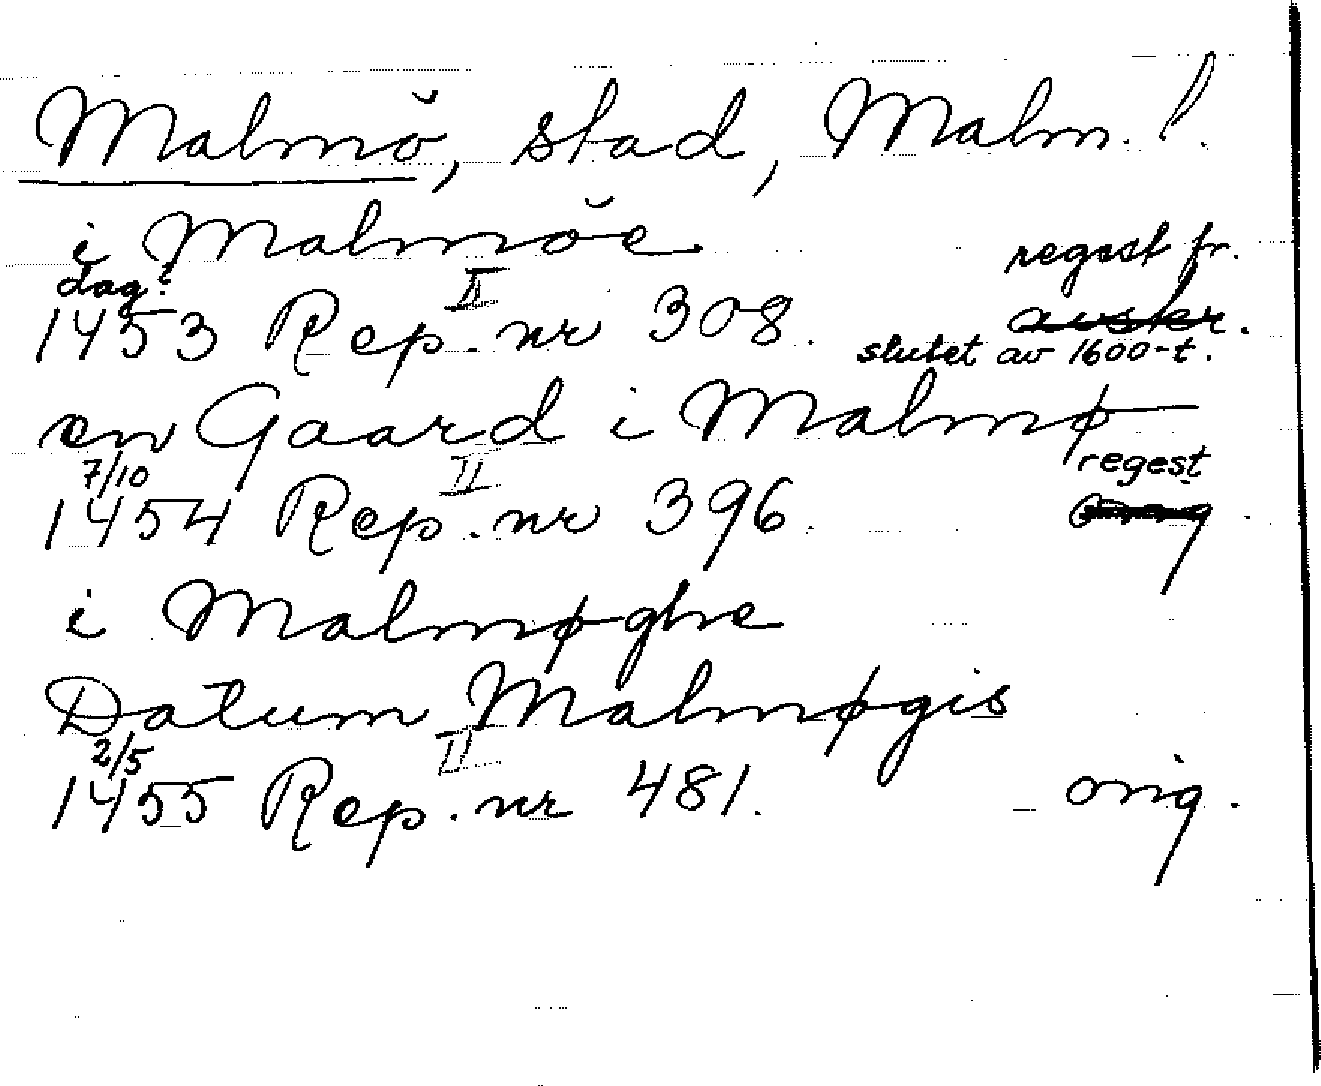 Malmö, stad, Malm. l.
i Malmöe
regest fr.
dag?
1453 Rep. II nr 308. avskr.
slutet av 1600-t.
en Gaard i Malmø
7/10 regest
1454 Rep. II nr 396.
i Malmøghe
Datum Malmøgis
2/5
1455 Rep. II nr 481. orig.